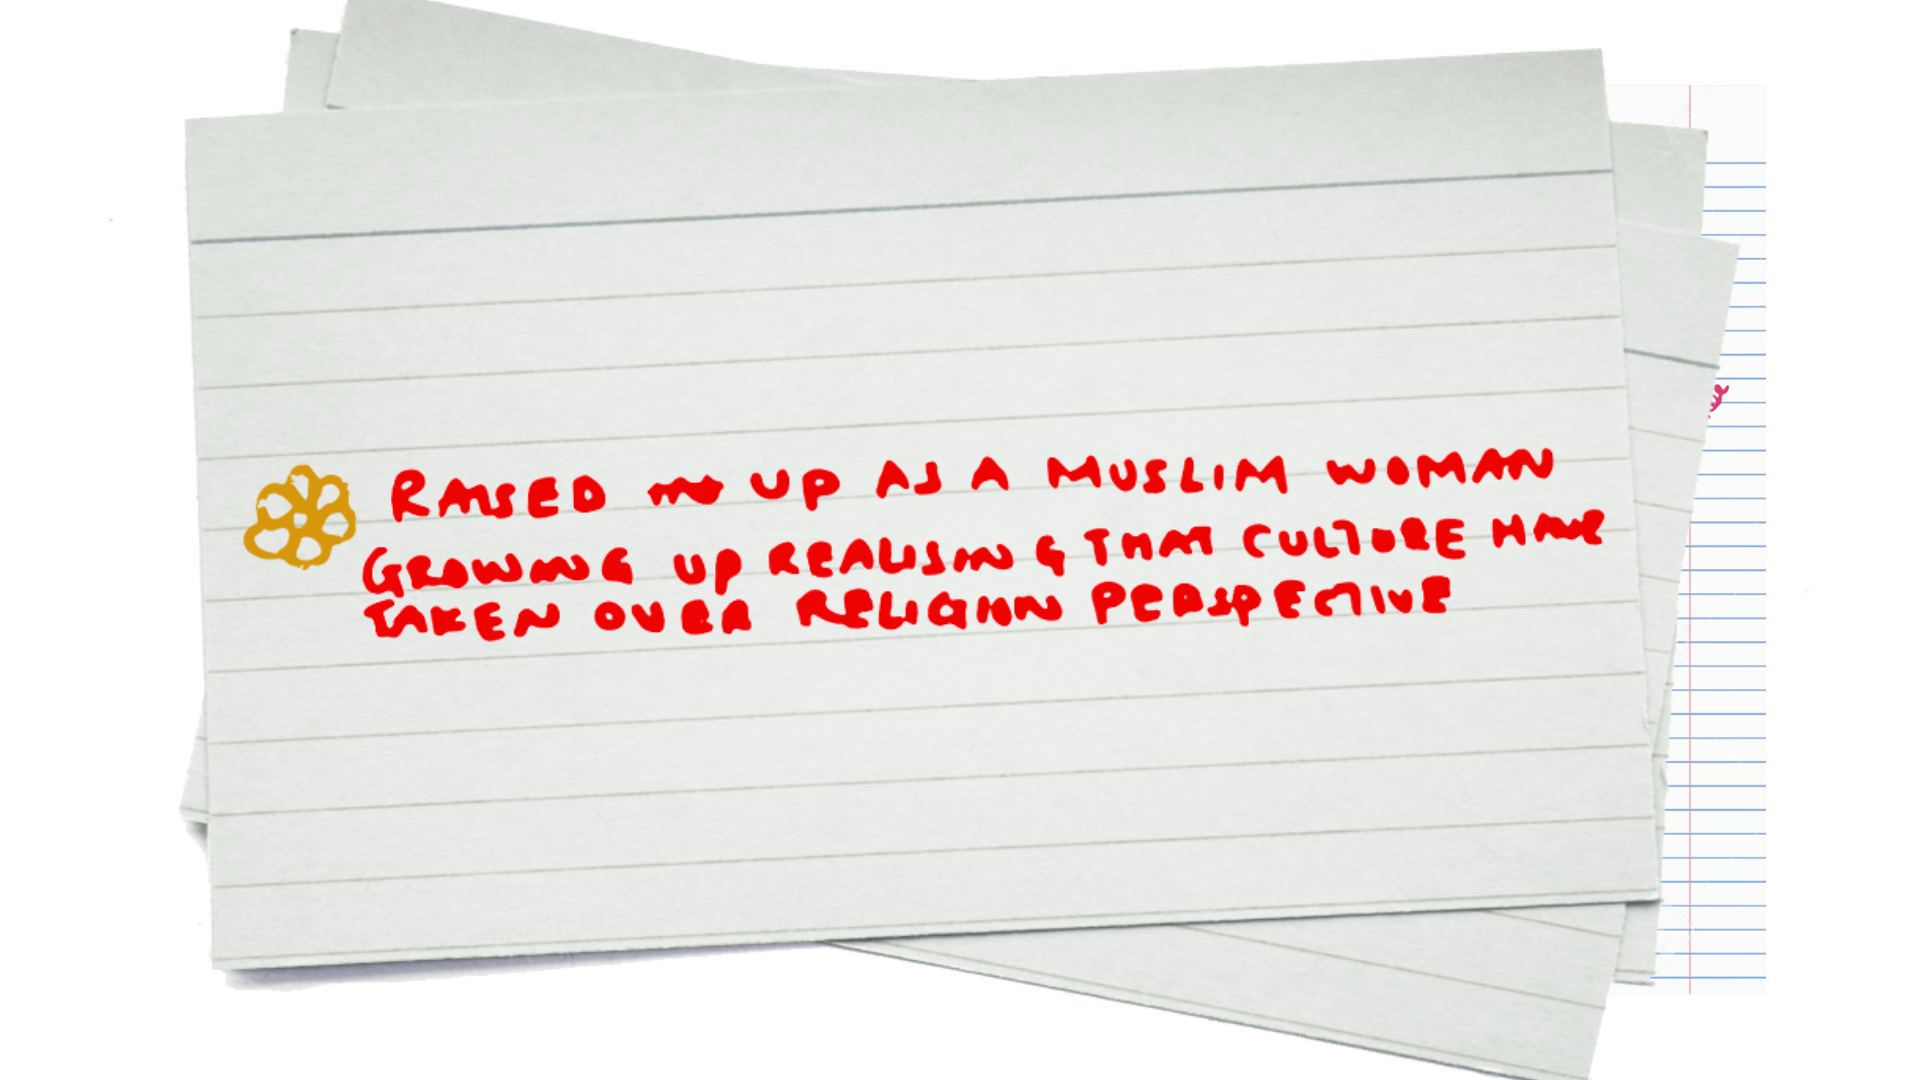 RAISED UP AS A MUSLIM WOMAN
GROWING UP REALISING THAT CULTURE HAVE
TAKEN OVER RELIGION PERSPECTIVE